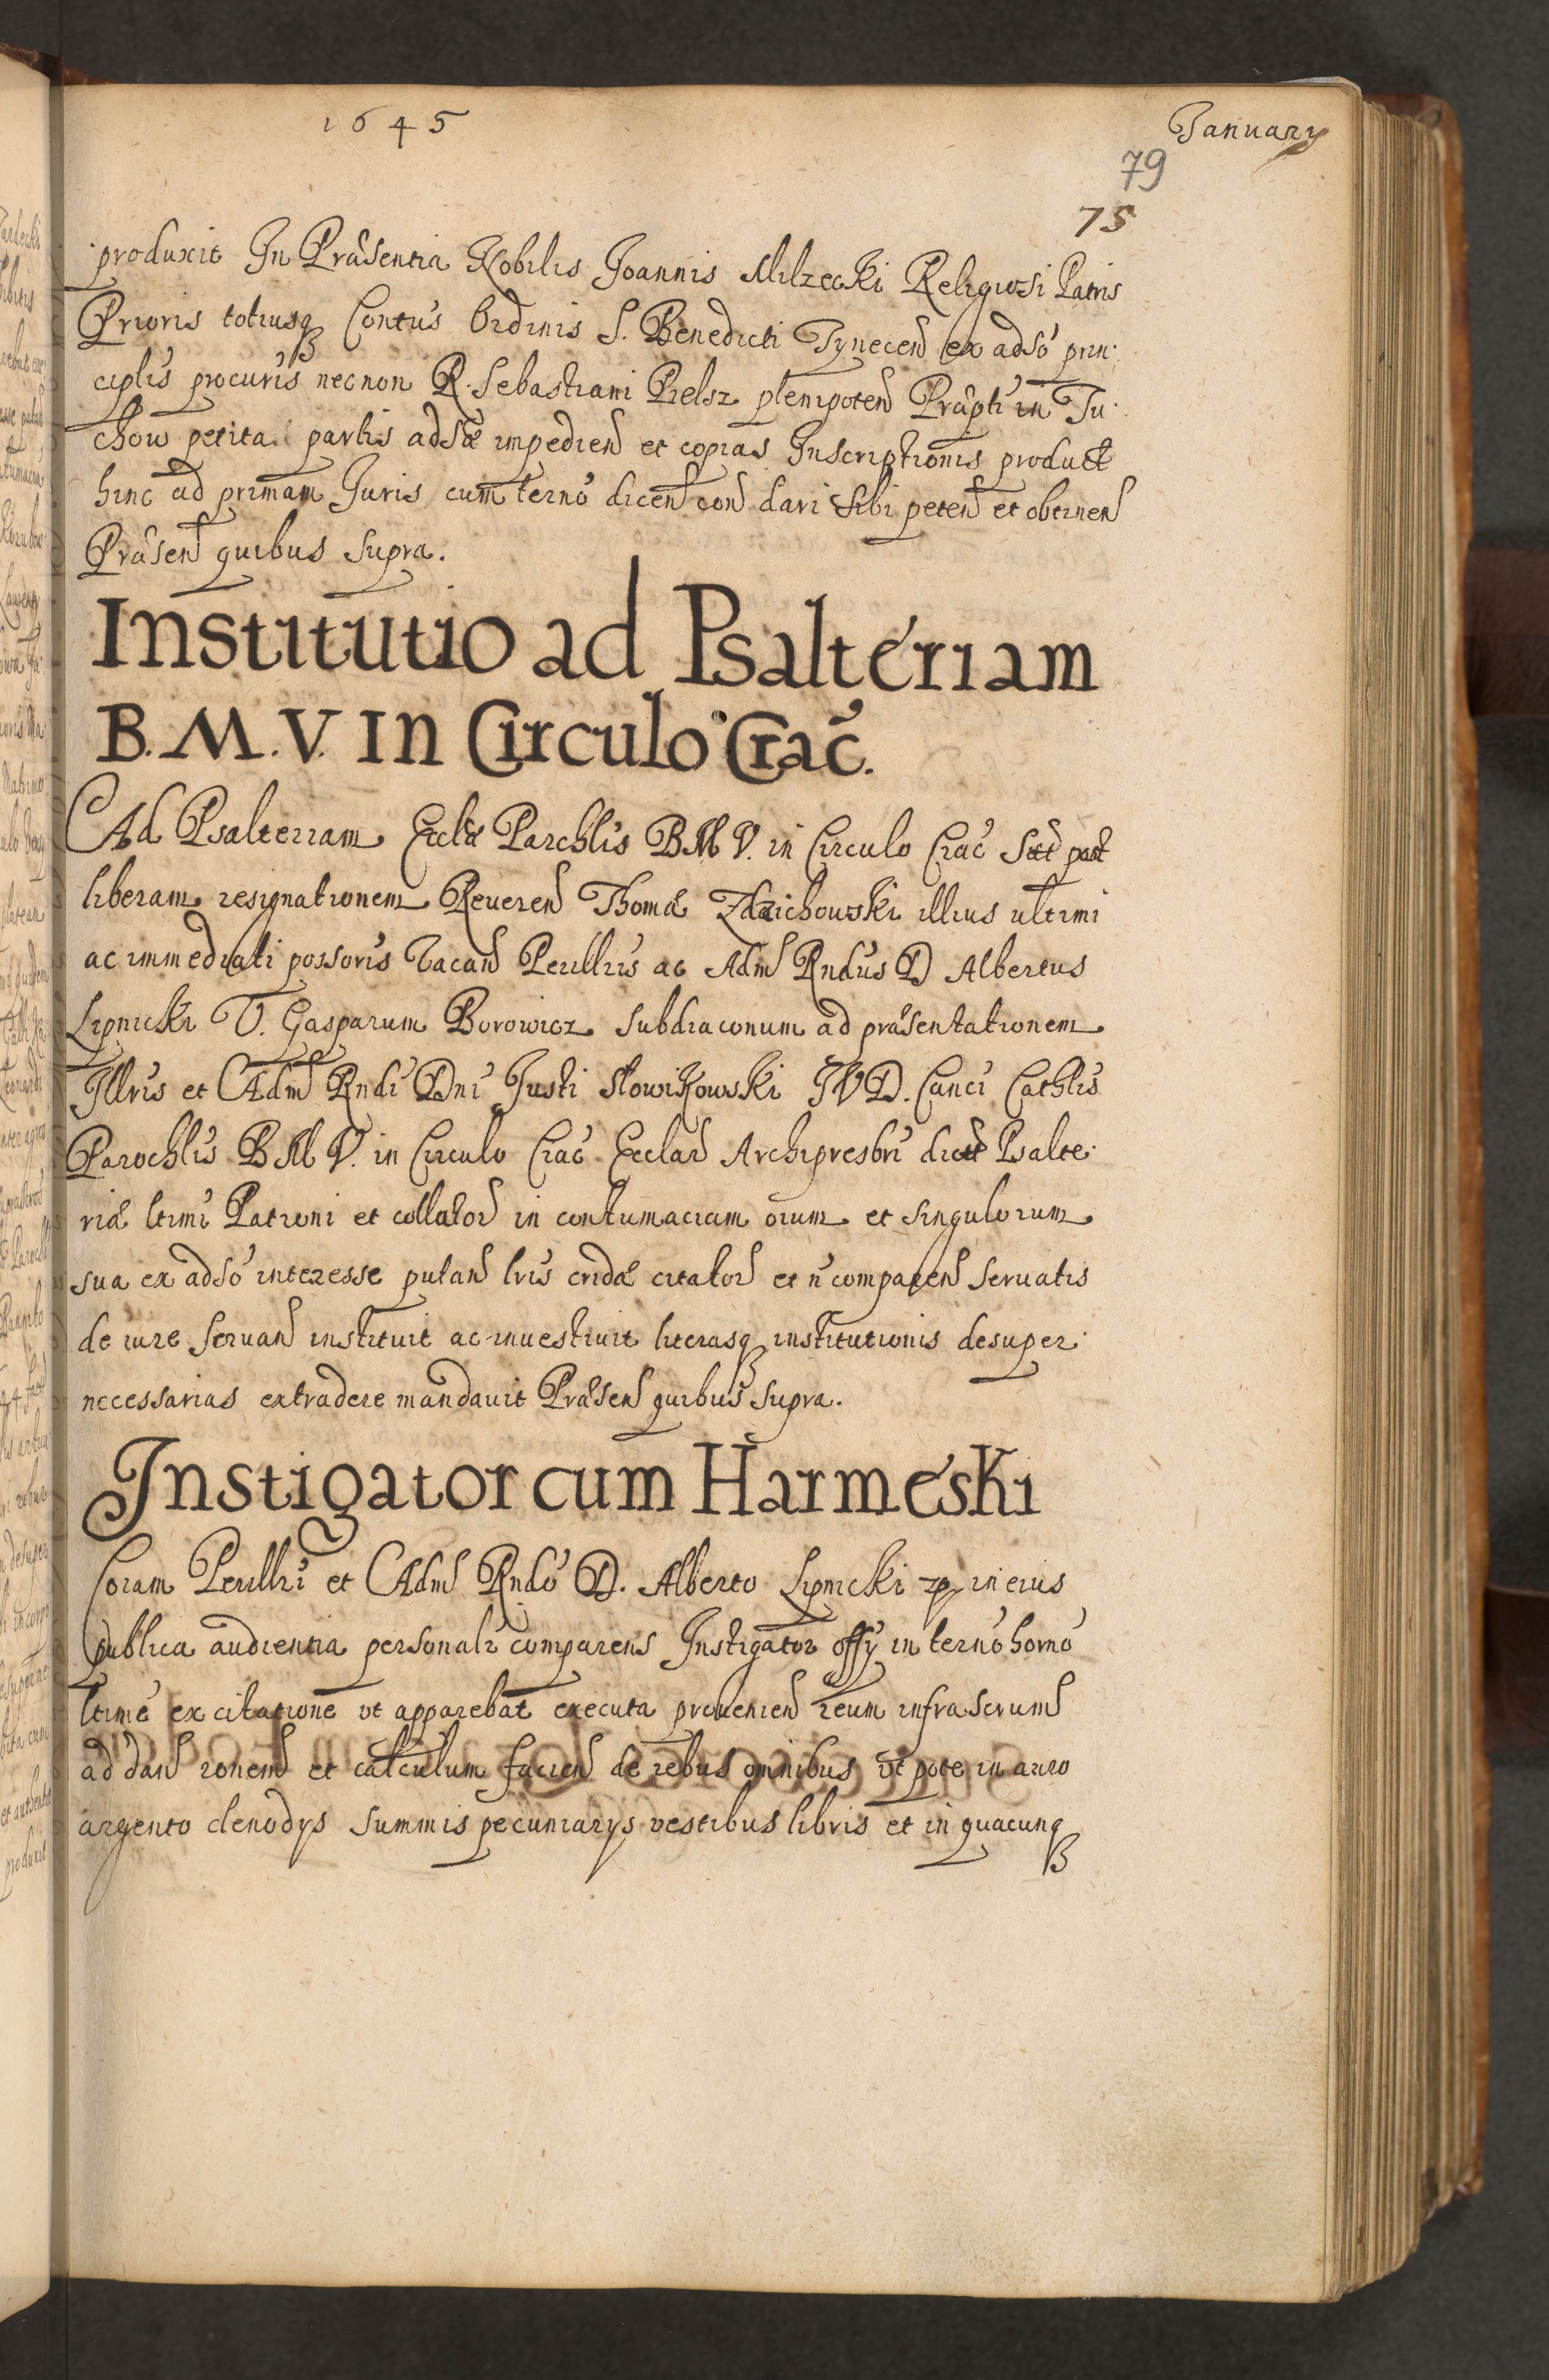 1645
Januarÿ
79
75
produxit In Præsentia Nobilis Joannis Milzecki Religiosi Patris
Prioris totiusq Contus Ordinis S. Benedicti Tynecen ex adso prin-
ciplis procuris necnon R. Sebastiani Pielsz plenipoten Præpti in Tu-
chow petita partis adsæ impedien et copias Inscriptionis product
hinc ad primam Juris cum terno dicen con dari sibi peten et obtinen
Præsen quibus supra.
Institutio ad Psalteriam
B. M. V. In Circulo Crac.
Ad Psalteriam Ecclæ Parchlis B M V. in Circulo Crac Sæt post
liberam resignationem Reveren Thomæ Zdzichowski illius ultimi
ac immediati possoris Vacan Perillris ac Adm Rndus D Albertus
Lipnicki V. Gasparum Borowicz subdiaconum ad præsentationem
Illris et Adm Rndi Dni Justi Słowikowski J V D. Canci Cathlis
Parochlis B M V. in Circulo Crac Ecclar Archipresbri dictæ Psalte-
riæ ltimi Patroni et collator in contumaciam oium et singulorum
sua ex adso interesse putan lris cridæ citator et n comparen servatis
de iure servan instituit ac investivit literasq institutionis desuper
necessarias extradere mandavit Præsen quibus supra.
Instigator cum Harmeski
Coram Perillri et Adm Rndo D. Alberto Lipnicki zp in eius
publica audientia personalr comparens Instigator offÿ in terno horno
ltime ex citatione ut apparebat executa provenien reum infrascrum
ad dan ronem et calculum facien de rebus omnibus ut pote in auro
argento clenodÿs summis pecuniarÿs vestibus libris et in quacunq